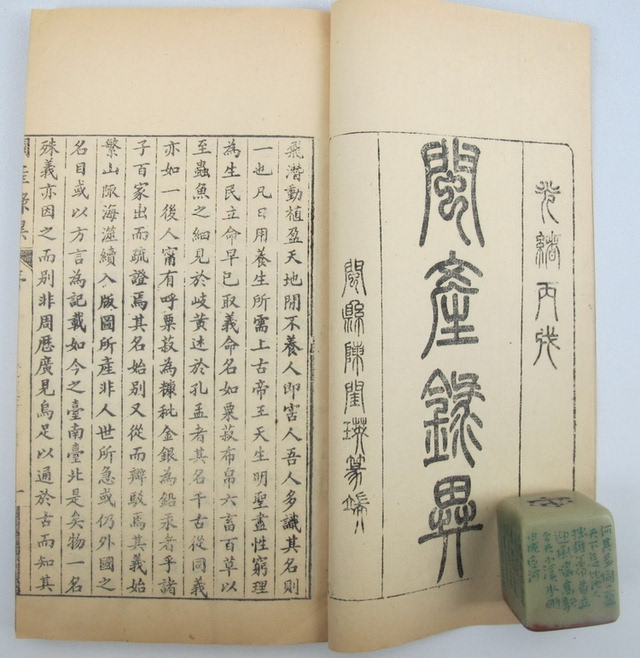 光緒丙戌
閩產錄異
閩縣陳閨瑛篆端
飛潛動植盈天地閒不養人即害人吾人多識其名則
一也凡日用養生所需上古帝王天生明聖盡性窮理
為生民立命早已取義命名如粟菽布帛六畜百草以
至蟲魚之之細見於岐黃迷於孔孟者其名千古從同義
亦如一後人甯有呼粟菽為糠秕金銀為鉛汞者乎諸
子百家出而疏證焉其名始別又從而辨駁焉其義始
繁山陬海澨續入版圖所產非人世所急或仍外國之
名目或以方言為記載如今之臺南臺北是矣物一名
殊義亦因之而別非周歷廣見烏足以通於古而知其
閩產錄異